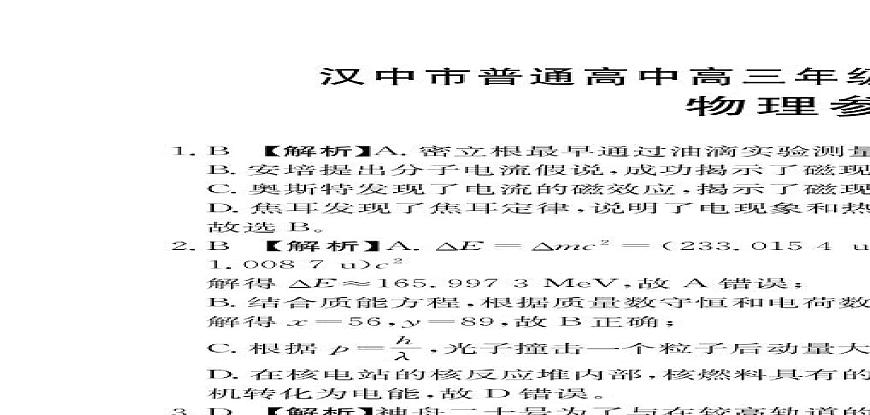 汉中市普通高中高三年级
物理参
1. B 【解析】A. 密立根最早通过油滴实验测量
B. 安培提出分子电流假说，成功揭示了磁现
C. 奥斯特发现了电流的磁效应，揭示了磁现
D. 焦耳发现了焦耳定律，说明了电现象和热
故选 B。
2. B 【解析】A. ΔE = Δmc² = (233.015 4 u
1.008 7 u)c²
解得 ΔE≈165.997 3 MeV，故 A 错误；
B. 结合质能方程，根据质量数守恒和电荷数
解得 x=56，y=89，故 B 正确；
C. 根据 p=h/λ，光子撞击一个粒子后动量大
D. 在核电站的核反应堆内部，核燃料具有的
机转化为电能，故 D 错误。
3. D 【解析】神舟二十号为了与在较高轨道的